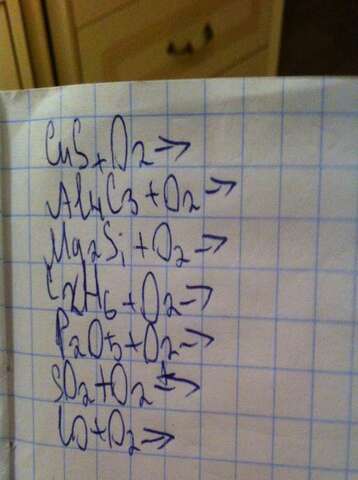 CuS + O2 →
Al4C3 + O2 →
Mg2Si + O2 →
C2H6 + O2 →
P2O5 + O2 →
SO2 + O2 →
CO + O2 →